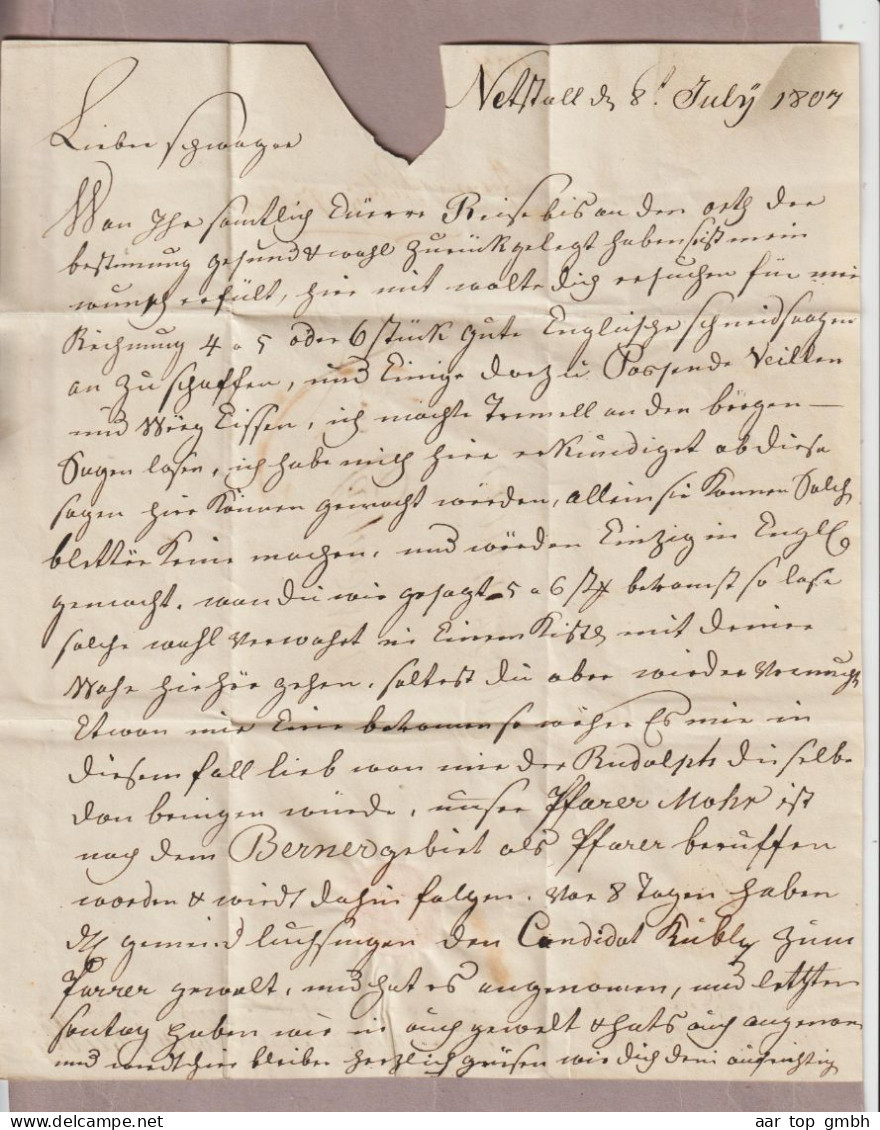 Netstall dn 8t July 1807
Lieber schwager
Wan Ihr samtlich Eüerre Reise bis an den orth der
bestimung gesund & wohl zurükgelegt haben so ist mein
wunsch erfült, hier mit wolte dich ersuchen für mein
Rechnung 4 a 5 oder 6 stük gute Englische schneidsaagen
an zu schaffen, und Einige darzu Passende Veillen
und Eissen, ich möchte an den bergen
Sagen lasen, ich habe mich hier erkundiget ob diese
sagen hier können gemacht werden, allein sie können Solche
bletter keine machen, und werden Einzig in Engl
gemacht. wan du wie gesagt 5 a 6 stk bekomst so lase
solche wohl verwahrt in Einem Kistli mit deiner
Wahr hieher gehen. soltest du aber wieder vermuthen
Etwan nur Eine bekomen so wehre Es mir in
diesem fall lieb wan mir der Rudolph dieselbe
dan bringen würde, unser Pfarer Mohr ist
nach dem Bernergebiet als Pfarer beruffen
worden & wirdt dahin folgen. Vor 8 Tagen haben
die gemeind luchsingen den Candidat Kubly zum
Pfarrer gewelt, und hat es angenomen, und letzten
sontag haben wir in auch gewelt & hats auch angenomen
und wirdt hier bleiben herzlich grüsen wir dich dein aufrichtig
aar top gmbh